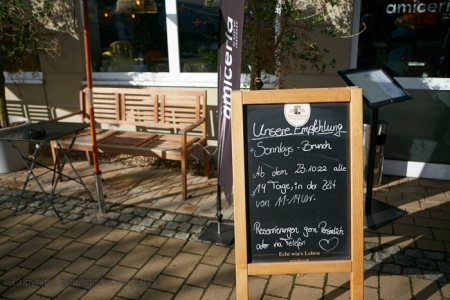 amiceria
amiceria
Unsere Empfehlung
Sonntags-Brunch
Ab den 23.10.22 alle
14 Tage, in der Zeit
von 11-14 Uhr.
Reservierungen gern Persönlich
oder via Telefon
Echt wie's Leben